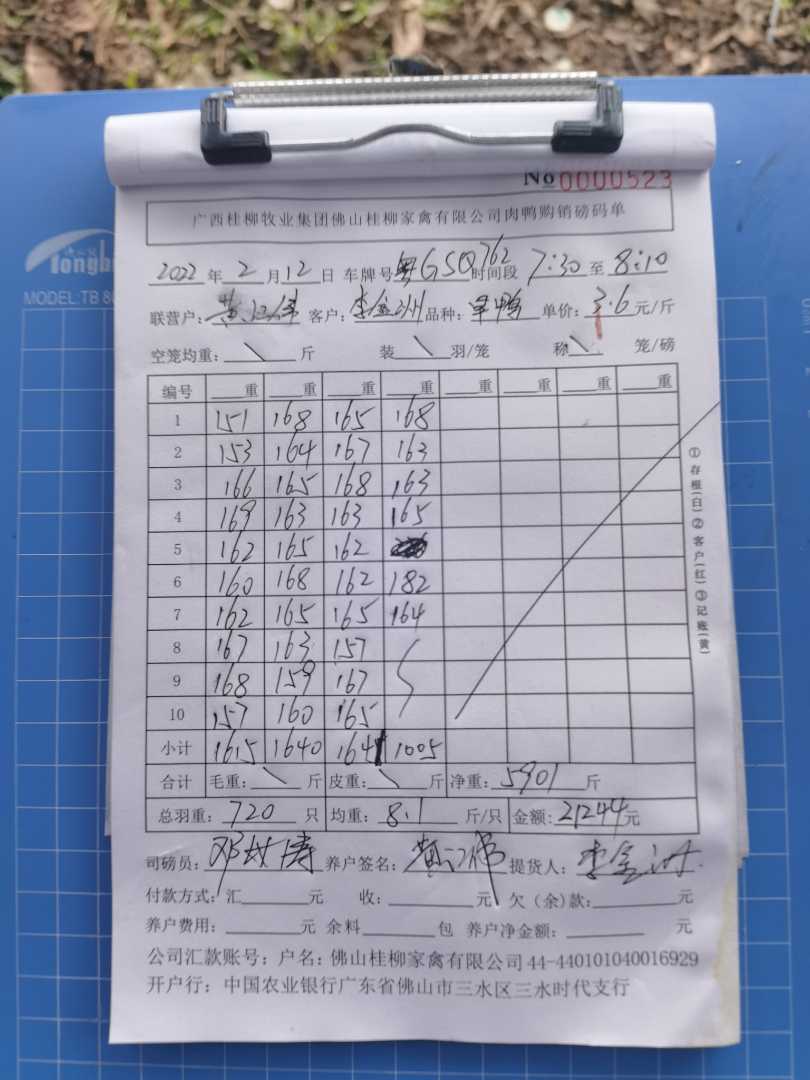 No 0000523
广西桂柳牧业集团佛山桂柳家禽有限公司肉鸭购销磅码单
2022 年 2 月 12 日 车牌号 粤GSQ762 时间段 7:30 至 8:10
联营户: 客户: 李金洲 品种: 单价: 3.6 元/斤
空笼均重: \ 斤 装 \ 羽/笼 称 \ 笼/磅
编号 重 重 重 重 重 重 重 重
1 151 168 165 168
2 153 164 167 163
3 166 165 168 163
4 169 163 163 165
5 162 165 162
6 160 168 162 182
7 162 165 165 164
8 167 163 157
9 168 159 167
10 157 160 165
小计 1615 1640 1641 1005
合计 毛重: \ 斤 皮重: \ 斤 净重: 5901 斤
总羽重: 720 只 均重: 8.1 斤/只 金额: 21244 元
司磅员: 养户签名: 提货人: 李金洲
付款方式: 汇 元 收: 元 欠(余)款: 元
养户费用: 元 余料 包 养户净金额: 元
公司汇款账号: 户名: 佛山桂柳家禽有限公司 44-440101040016929
开户行: 中国农业银行广东省佛山市三水区三水时代支行
①存根(白)②客户(红)③记账(黄)
MODEL:TB 80